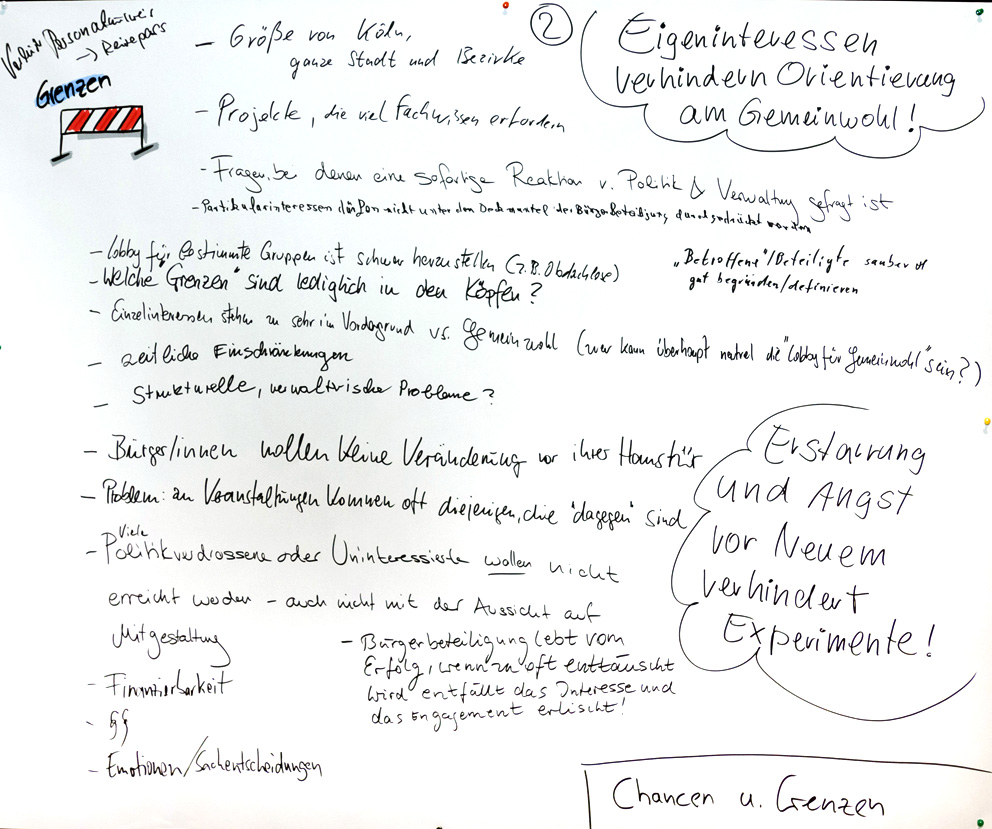 Verlust Personalausweis
→ Reisepass
Grenzen
- Größe von Köln,
ganze Stadt und Bezirke
- Projekte, die viel Fachwissen erfordern
- Fragen, bei denen eine sofortige Reaktion v. Politik & Verwaltung gefragt ist
- Partikularinteressen dürfen nicht unter dem Deckmantel der Bürgerbeteiligung durchgedrückt werden
②
Eigeninteressen
verhindern Orientierung
am Gemeinwohl!
- Lobby für bestimmte Gruppen ist schwer herzustellen (z.B. Obdachlose)
"Betroffene"/Beteiligte sauber
gut begründen/definieren
- Welche "Grenzen" sind lediglich in den Köpfen?
- Einzelinteressen stehen zu sehr im Vordergrund vs. Gemeinwohl (wer kann überhaupt neutral die "Lobby für Gemeinwohl" sein?)
- zeitliche Einschränkungen
- Strukturelle, verwalterische Probleme?
- Bürger/innen wollen keine Veränderung vor ihrer Haustür
- Problem: zu Veranstaltungen kommen oft diejenigen, die "dagegen" sind
- Viele Politikverdrossene oder Uninteressierte wollen nicht
erreicht werden - auch nicht mit der Aussicht auf
Mitgestaltung
- Finanzierbarkeit
- §§
- Emotionen/Sachentscheidungen
- Bürgerbeteiligung lebt vom
Erfolg, wenn zu oft enttäuscht
wird entfällt das Interesse und
das Engagement erlischt!
Erstarrung
und Angst
vor Neuem
verhindert
Experimente!
Chancen u. Grenzen